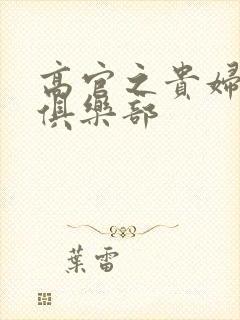 高官之貴婦
俱樂部
葉雷